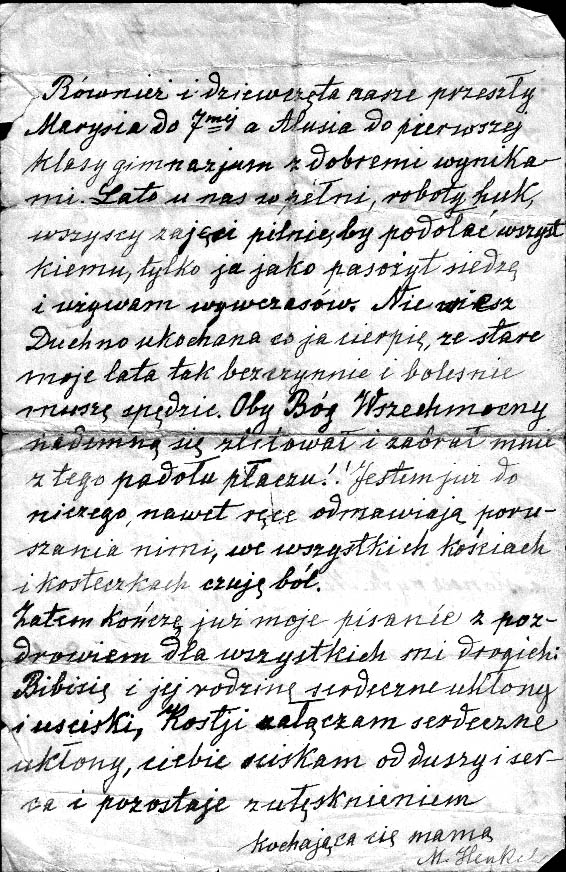 Również i dziewczęta nasze przeszły
Marysia do 7mej a Alusia do pierwszej
klasy gimnazjum z dobremi wynika-
mi. Lato u nas w pełni, roboty huk,
wszyscy zajęci pilnie, by podołać wszyst
kiemu, tylko ja jako pasożyt siedzę
i używam wywczasów. Nie wiesz
Duchno ukochana co ja cierpię, że stare
moje lata tak bezczynnie i boleśnie
muszę spędzić. Oby Bóg Wszechmocny
nademną się zlitował i zabrał mnie
z tego padołu płaczu!! Jestem już do
niczego, nawet ręce odmawiają poru-
szania nimi, we wszystkich kościach
i kosteczkach czuję ból.
Zatem kończę już moje pisanie z poz-
drowiem dla wszystkich mi drogich:
Bibisię i jej rodzinę serdeczne ukłony
i usciski, Kostji załączam serdeczne
ukłony, ciebie sciskam od duszy i ser-
ca i pozostaje z utęsknieniem
kochająca cię mama
M. Henkel